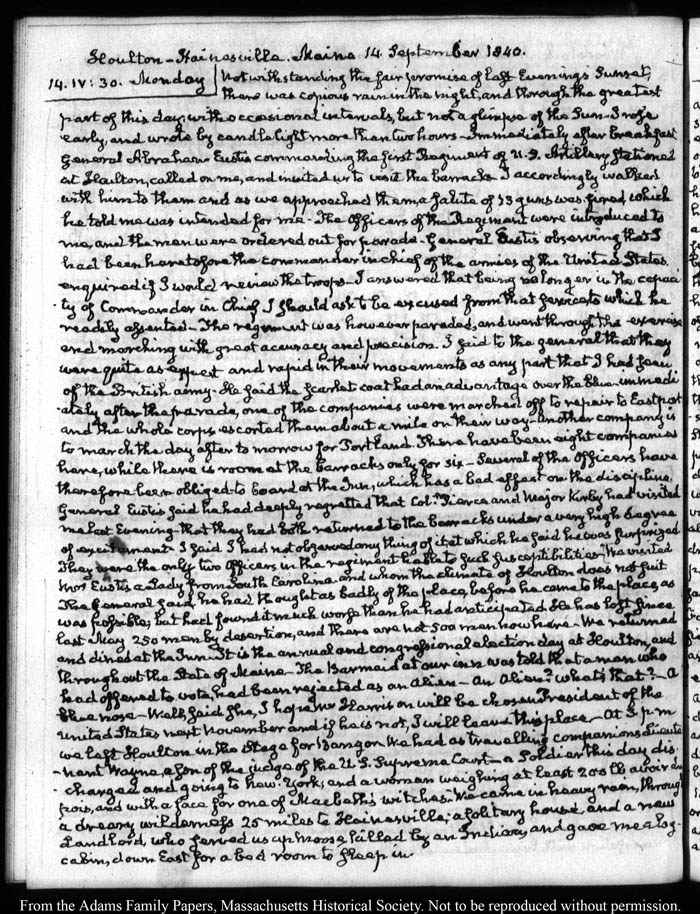 Houlton–Hainesville. Maine 14. September 1840.
14. IV: 30. Monday
Notwithstanding the fair promise of last Evenings Sunset,
there was copious rain in the night, and through the greatest
part of this day; with occasional intervals, but not a glimpse of the Sun. I rose
early, and wrote by candlelight more than two hours – Immediately after breakfast
General Abraham Eustis commanding the first Regiment of U.S. Artillery stationed
at Houlton, called on me, and invited us to visit the barracks. I accordingly walked
with him to them and as we approached them, a salute of 13 guns was fired which
he told me was intended for me – The Officers of the Regiment were introduced to
me, and the men were ordered out for parade. General Eustis observing that I
had been heretofore the commander in chief of the armies of the United States
enquired if I would review the troops – I answered that being no longer in the capaci
ty of Commander in Chief I should ask to be excused from that service to which he
readily assented – The regiment was however paraded, and went through the exercise
and marching with great accuracy and precision. I said to the general that they
were quite as expert and rapid in their movements as any part that I had seen
of the British army – He said the scarlet coat had an advantage over the blue. immedi
ately after the parade, one of the companies were marched off to repair to Eastport
and the whole corps escorted them about a mile on their way – another company is
to march the day after to morrow for Portland. There have been eight companies
here, while there is room at the barracks only for six – Several of the Officers have
therefore been obliged to board at the Inn, which has a bad effect on the discipline.
General Eustis said he had deeply regretted that Col. Pierce and Major Kirby had visited
me last Evening – that they had both returned to the barracks under a very high degree
of excitement – I said I had not observed any thing of it at which he said he was surprized
They were the only two officers in the regiment liable to such susceptibilities. We visited
Mrs Eustis a Lady from South Carolina and whom the climate of Houlton does not suit
The General said, he had thought as badly of the place, before he came to the place, as
was possible; but had found it much worse than he had anticipated He has lost since
last May 250 men by desertion, and there are not 500 men now here. We returned
and dined at the Inn. It is the annual and congressional election day at Houlton, and
throughout the State of Maine – The Barmaid at our inn was told that a man who
had offered to vote, had been rejected as an Alien – An Alien? whats that? – A
blue nose – Well, said she, I hope Mr Harrison will be chosen President of the
United States next November and if he is not, I will leave this place – At 3. p.m
we left Houlton in the Stage for Bangor. We had as travelling companions Lieute
nant Wayne, a son of the judge of the U.S. Supreme Court – a Soldier this day dis
charged and going to New York; and a woman weighing at least 200 lb avoir du
pois, and with a face for one of Macbeth's witches. We came in heavy rain, through
a dreary wilderness 25 miles to Hainesville; a solitary house, and a new
Landlord, who served us up moose killed by an Indian, and gave me a log-
cabin, down East for a bed room to sleep in
From the Adams Family Papers, Massachusetts Historical Society. Not to be reproduced without permission.